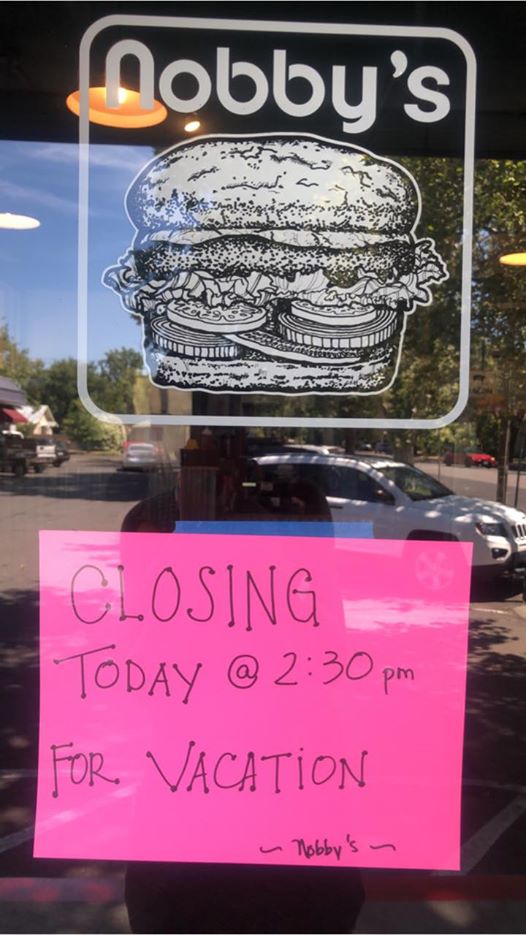 nobby's
CLOSING
TODAY @ 2:30 pm
FOR VACATION
~ Nobby's ~